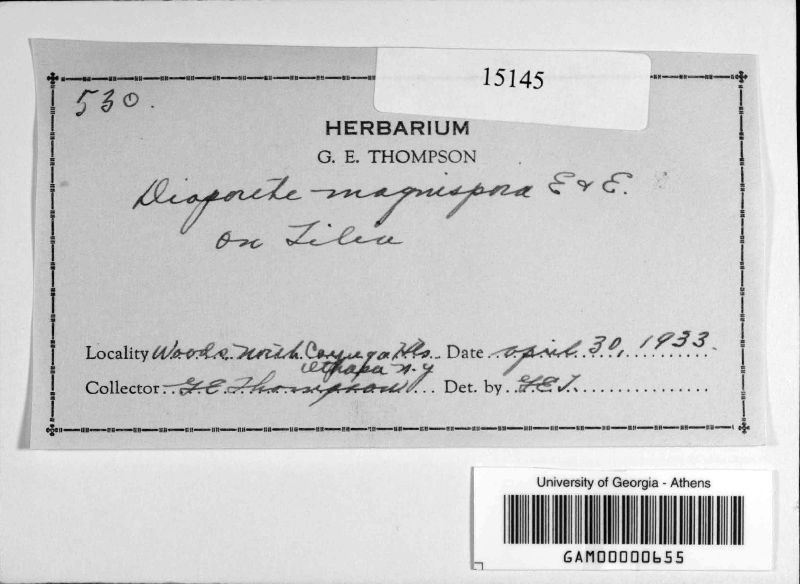 15145
530.
HERBARIUM
G. E. THOMPSON
Diaporthe magnispora E & E.
on Tilia
Locality Woods north Cayuga Hts. Date April 30, 1933.
Ithaca N.Y
Collector G E Thompson Det. by G.E.T.
University of Georgia - Athens
GAM00000655